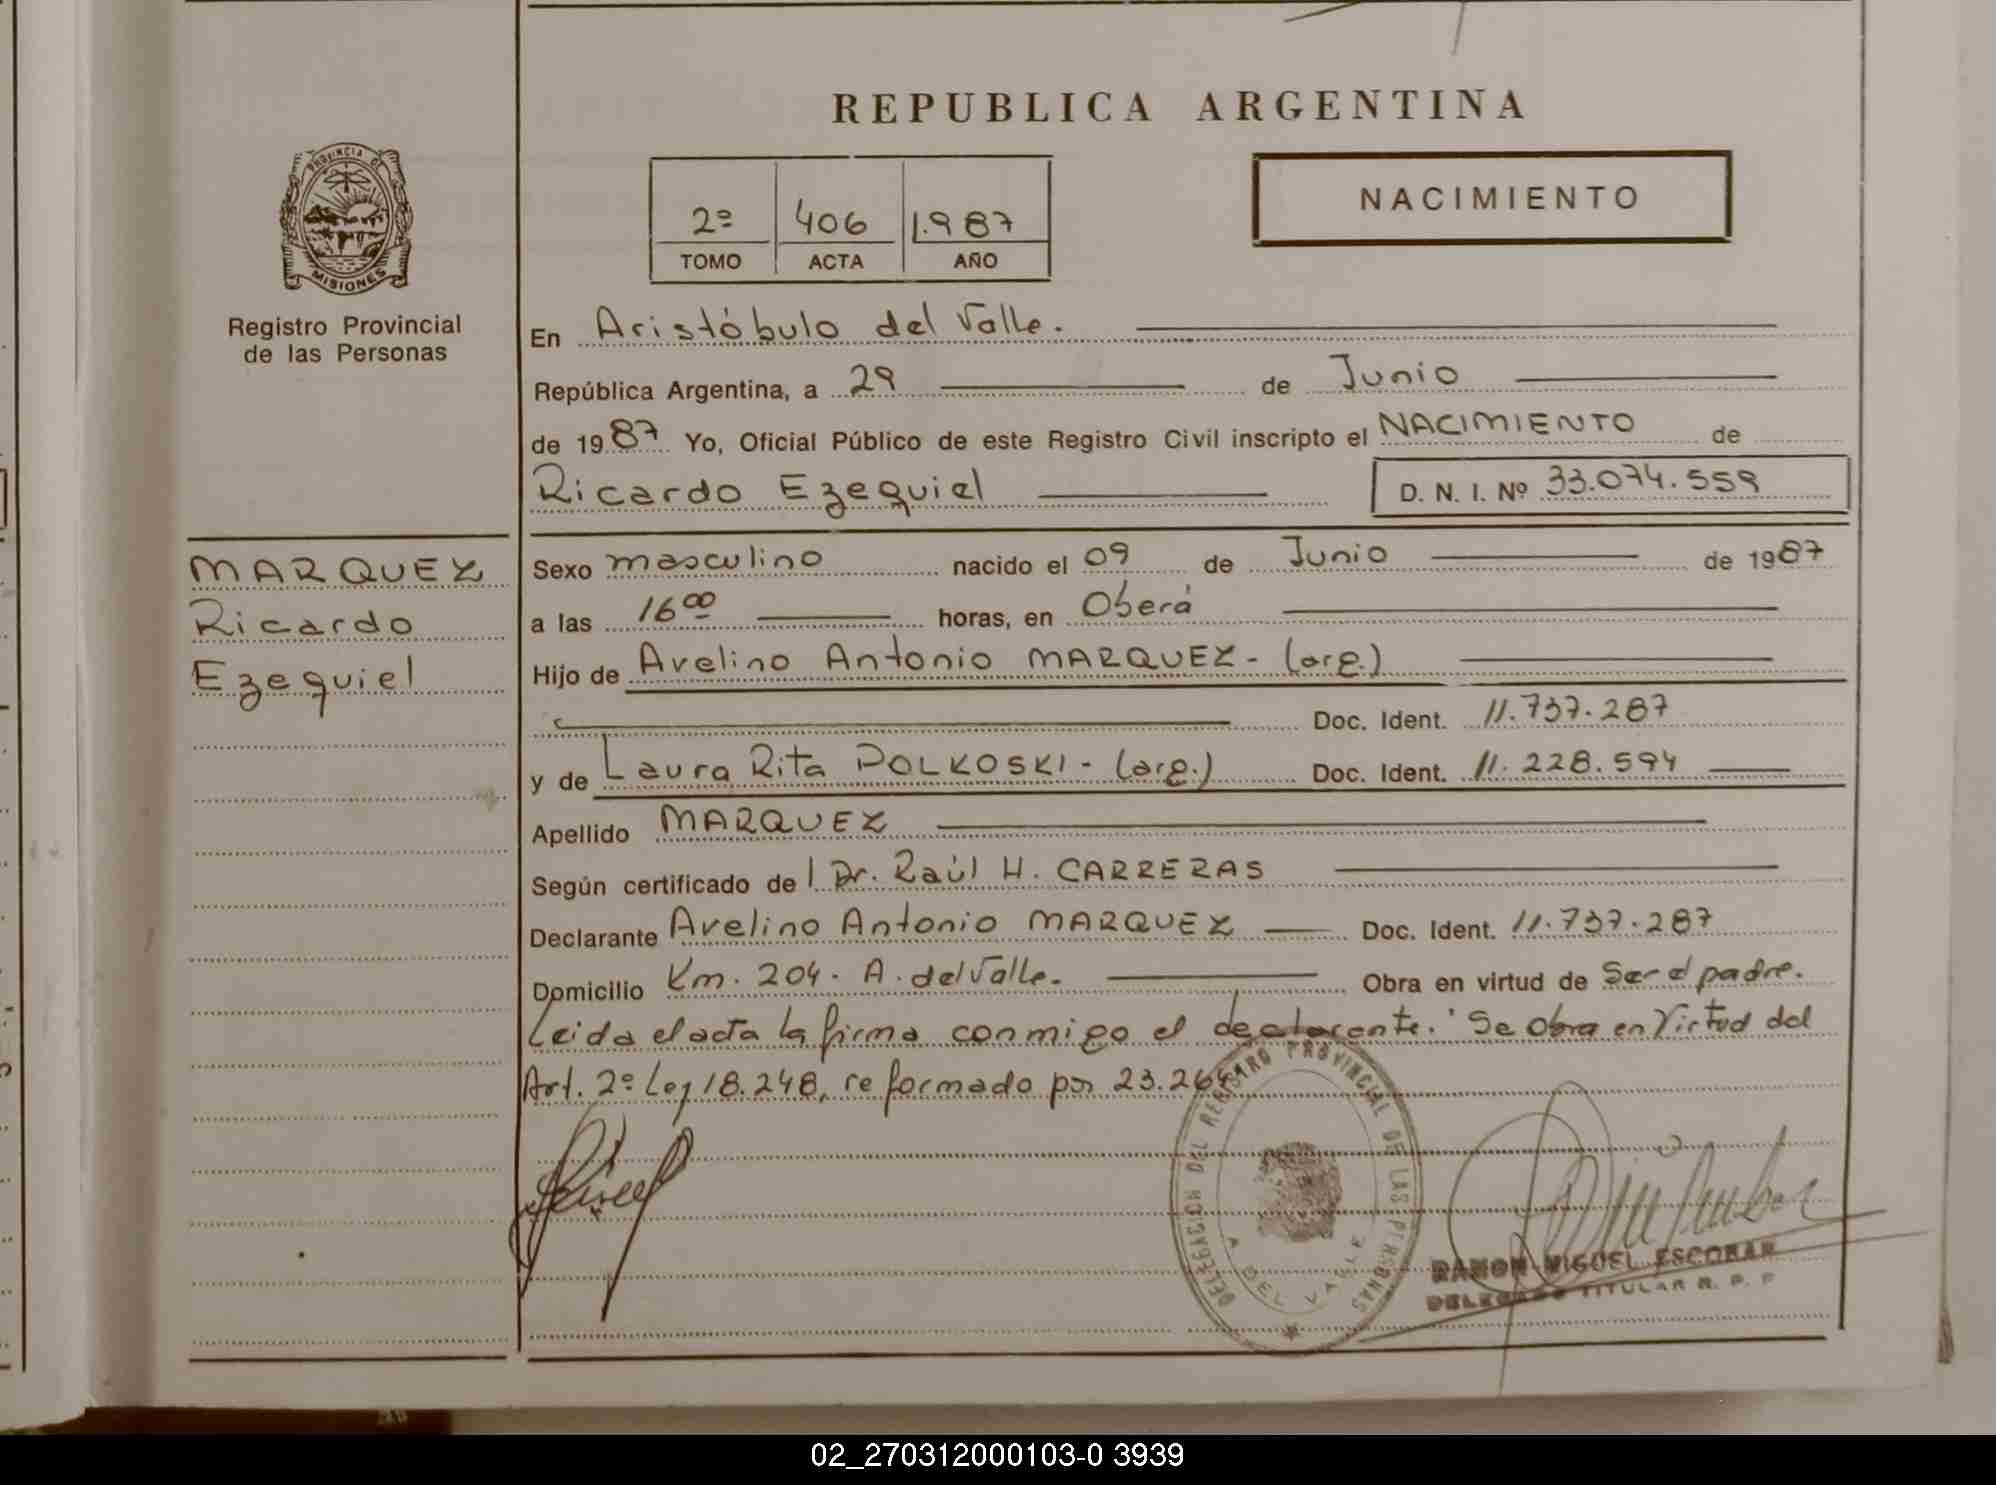 REPUBLICA ARGENTINA
PROVINCIA DE
MISIONES
Registro Provincial
de las Personas
2º 406 1.987
TOMO ACTA AÑO
NACIMIENTO
En Aristóbulo del Valle.
República Argentina, a 29 de Junio
de 1987 Yo, Oficial Público de este Registro Civil inscripto el NACIMIENTO de
Ricardo Ezequiel D. N. I. Nº 33.074.559
MARQUEZ
Ricardo
Ezequiel
Sexo masculino nacido el 09 de Junio de 1987
a las 16 00 horas, en Oberá
Hijo de Avelino Antonio MARQUEZ - (arg.)
Doc. Ident. 11.737.287
y de Laura Rita POLKOSKI - (arg.) Doc. Ident. 11.228.594
Apellido MARQUEZ
Según certificado de Dr. Raúl H. CARRERAS
Declarante Avelino Antonio MARQUEZ Doc. Ident. 11.737.287
Domicilio Km. 204. A. del Valle. Obra en virtud de Ser el padre.
Leida el acta la firma conmigo el declarante. Se Obra en Virtud del
Art. 2º Ley 18.248, reformado por 23.264
DELEGACION DEL REGISTRO PROVINCIAL DE LAS PERSONAS
A. DEL VALLE
RAMON MIGUEL ESCOBAR
DELEGADO TITULAR R. P. P.
02_270312000103-0 3939